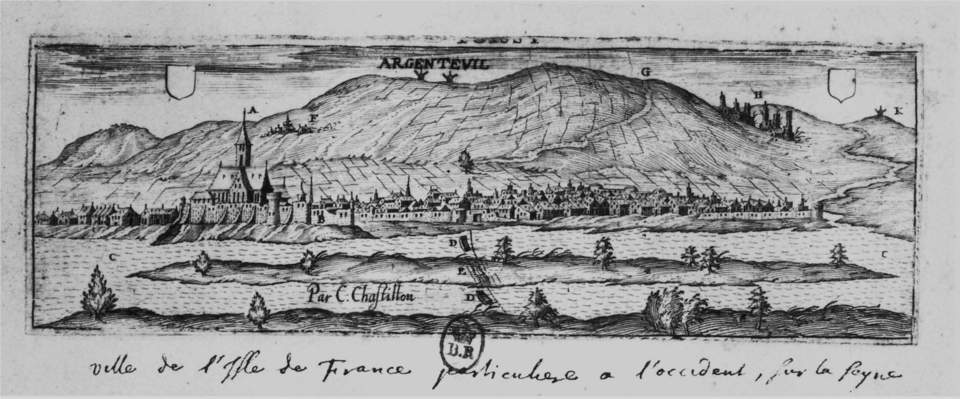 ARGENTEVIL
G
H
A
F
K
D
C
E
C
Par C. Chastillon
D
B.R
ville de l'Isle de France particuliere a l'occident, sur la seyne